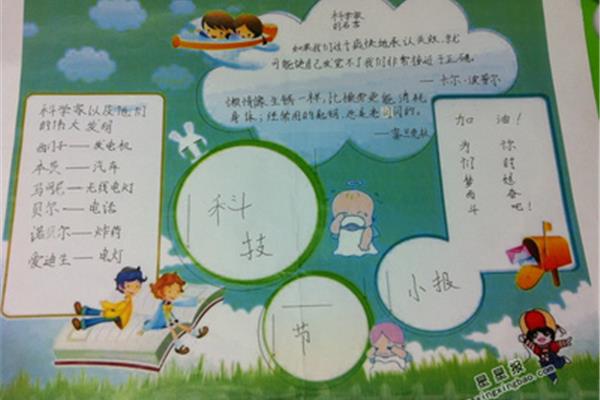 科学家
的名言
如果我们过于爽快地承认失败,就
可能使自己发觉不了我们非常接近于正确。
——卡尔·波普尔
懒惰像生锈一样,比操劳更能消耗
身体;经常用的钥匙,总是亮闪闪的。
——富兰克林
科学家以及他们
的伟大发明
西门子——发电机
本茨——汽车
马可尼——无线电灯
贝尔——电话
诺贝尔——炸药
爱迪生——电灯
科技
节
小报
加油!
为你
们的
梦想
而奋
斗吧!
星星报
xingxingbao.com